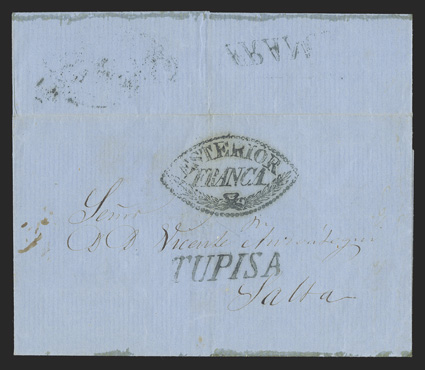 FRAN
ESTERIOR
FRANCA
Señor
D. D. Vicente
TUPISA
Salta